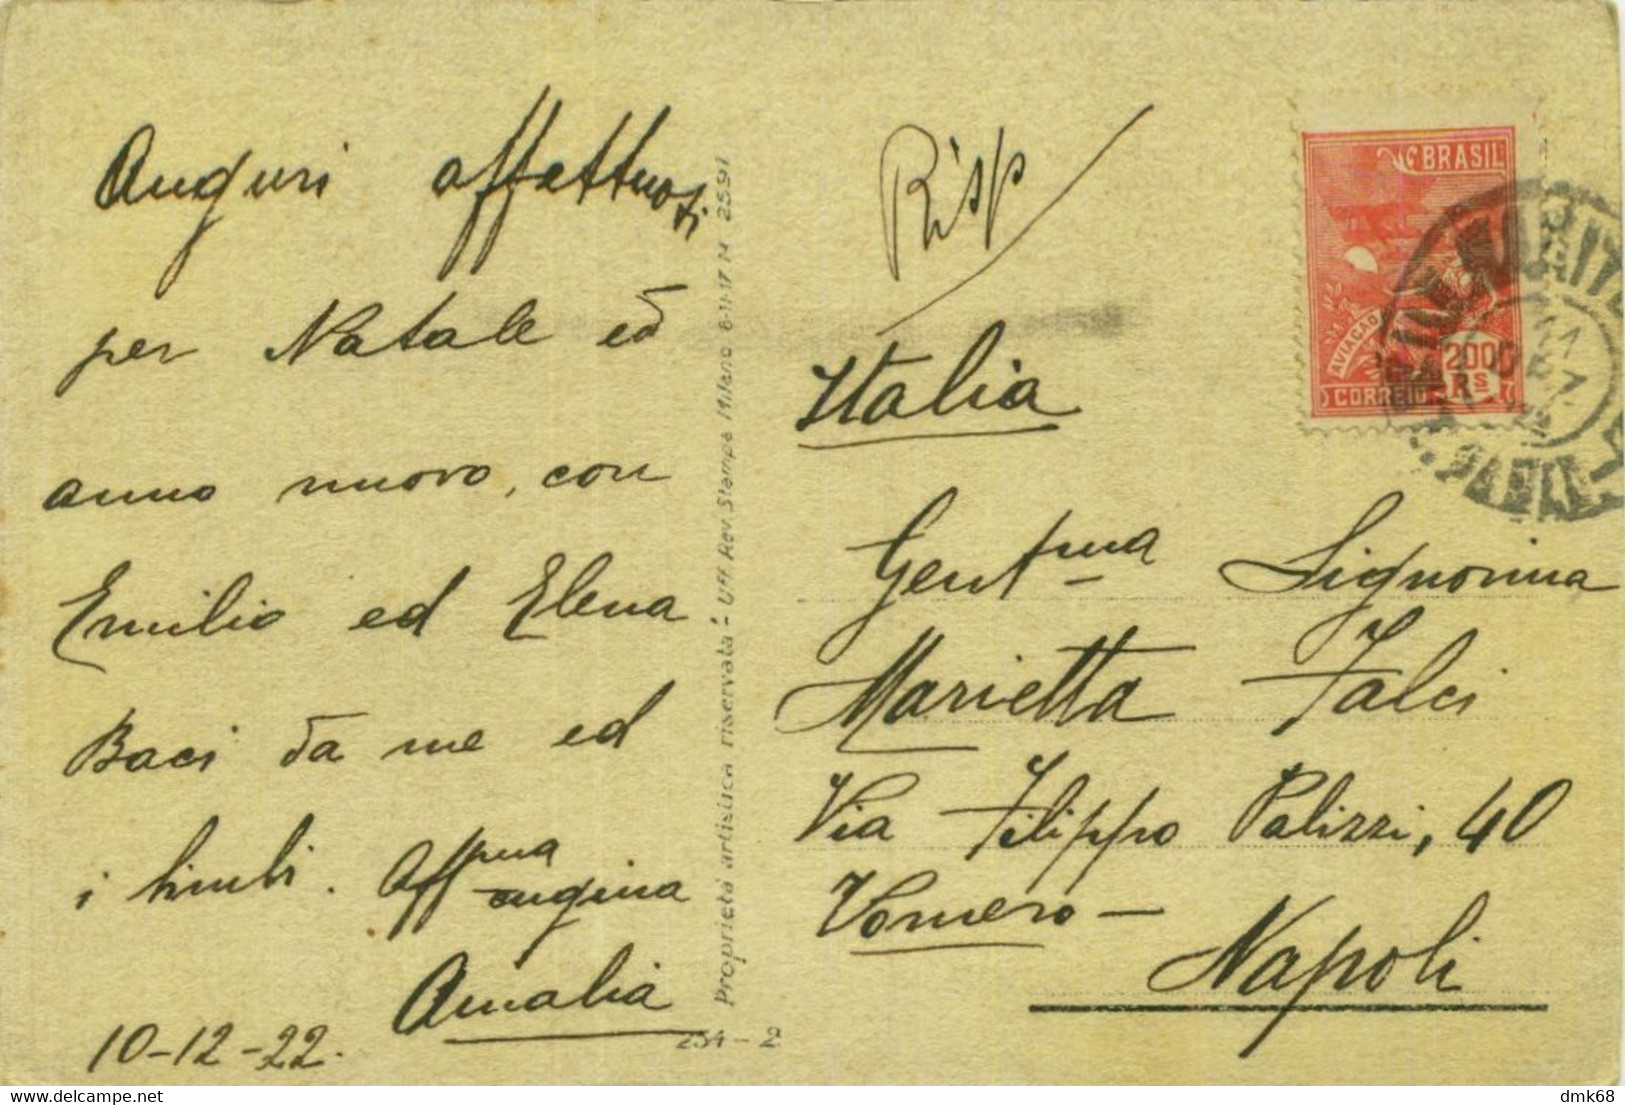 Auguri affettuosi
per Natale ed
anno nuovo, con
Emilio ed Elena
Baci da me ed
i bimbi. Aff.ma cugina
Amalia
10-12-22.
Proprietà artistica riservata - Uff Rev. Stampe Milano 6-11-17 N 2591
254-2
Risp
BRASIL
AVIAÇÃO
2000
Rs
CORREIO
Italia
Gent.ma Signorina
Marietta Falci
Via Filippo Palizzi, 40
Vomero -
Napoli
dmk68